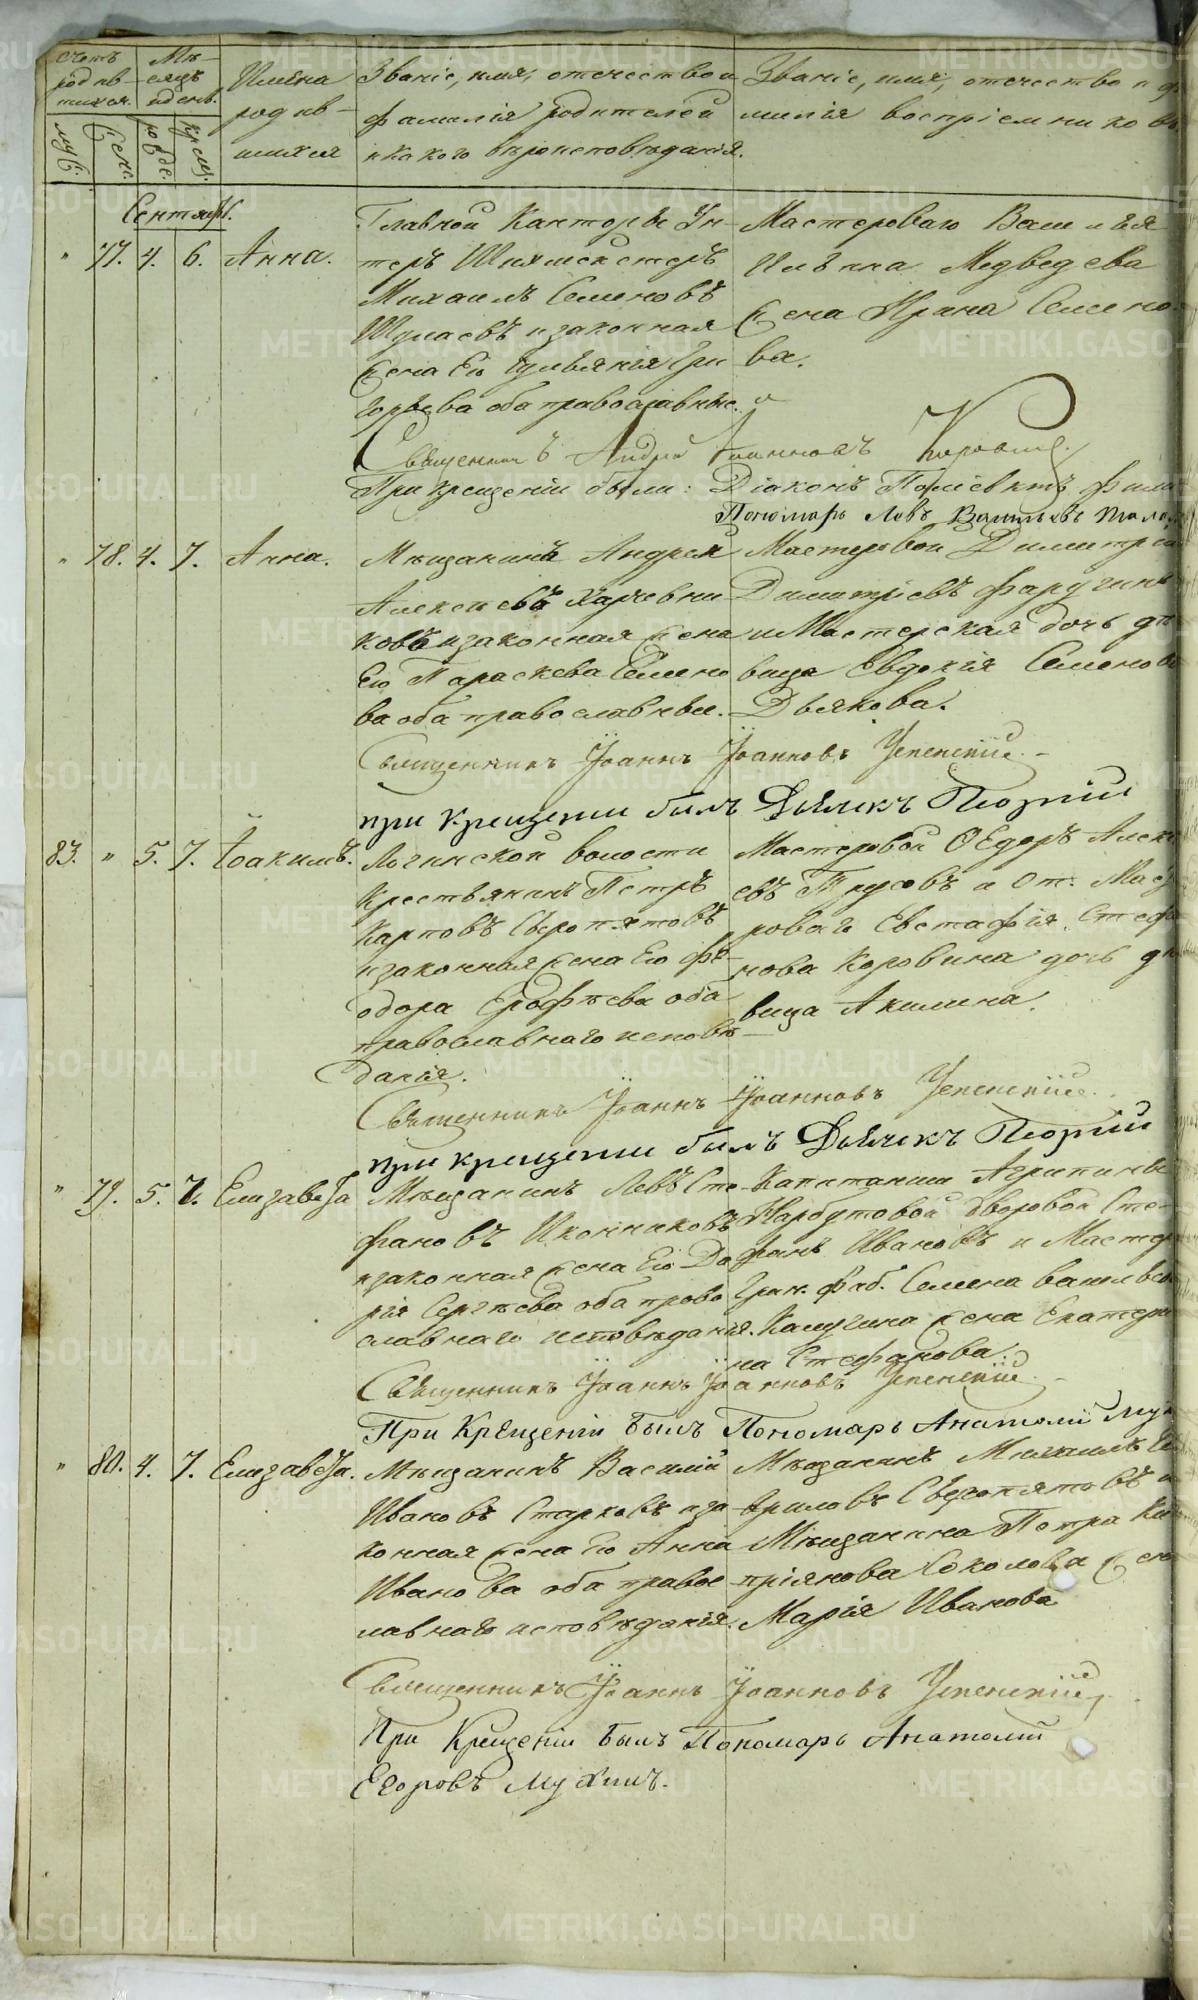 Счетъ родив-шихся. Мѣ-сяцъ и день. Имена родив-шихся
Званіе, имя, отечество и фамилія родителей и какого вѣроисповѣданія.
Званіе, имя, отечество и фамилія воспріемниковъ
муж. Жен. рожде. крещ.
Сентябрь.
" 77. 4. 6. Анна.
Главной Канторы Ун-
теръ Шихмейстеръ
Михаилъ Семеновъ
и законная
жена Его Гри
горьева оба православные.
Мастероваго Василья
Ильина Медведева
жена Ирина Семено
ва.
Священникъ Андрей Іоанновъ
При крещеніи были: Діаконъ
Пономарь Левъ
" 78. 4. 7. Анна.
Мѣщанинъ Андрей
Алексѣевъ Харчевни
ковъ и законная жена
Его Параскева Семено
ва оба православные.
Мастеровой Димитрій
Димитріевъ
и Мастерская дочь дѣ
вица Евдокія Семенова
Дьякова.
Священникъ Іоаннъ Іоанновъ Успенскій
при крещении былъ Дьячекъ Георгій
83. " 5. 7. Іоакимъ.
Логинской волости
Крестьянинъ Петръ
Карповъ Сыропятовъ
и законная жена Его Фе
одора Ерофѣева оба
православнаго исповѣ
данія.
Мастеровой Ѳедоръ Алексѣ
евъ Трусовъ и От. Масте
роваго Евстафія Стефа
нова Коровина дочь дѣ
вица Акилина.
Священникъ Іоаннъ Іоанновъ Успенскій
при крещении былъ Дьячекъ Георгій
" 79. 5. 7. Елизавета
Мѣщанинъ Левъ Сте
фановъ Иконниковъ
и законная жена Его Да
рія Сергѣева оба право
славнаго исповѣданія.
Капитанши Агрипины
Нарбутовой дворовой Сте
фанъ Ивановъ и Мастер
Гран. Фаб. Семена Васильева
Калугина жена Екатери
на Стефанова.
Священникъ Іоаннъ Іоанновъ Успенскій
При Крещеніи былъ Пономарь Анатолій
" 80. 4. 7. Елизавета.
Мѣщанинъ Василій
Ивановъ Старковъ и за
конная жена Его Анна
Иванова оба правос
лавнаго исповѣданія.
Мѣщанинъ Михаилъ
вриловъ Сыропятовъ и
Мѣщанина Петра Ки
пріянова Соколова жена
Марія Иванова
Священникъ Іоаннъ Іоанновъ Успенскій
При Крещеніи былъ Пономарь Анатолій
Егоровъ Мухинъ.
METRIKI.GASO-URAL.RU